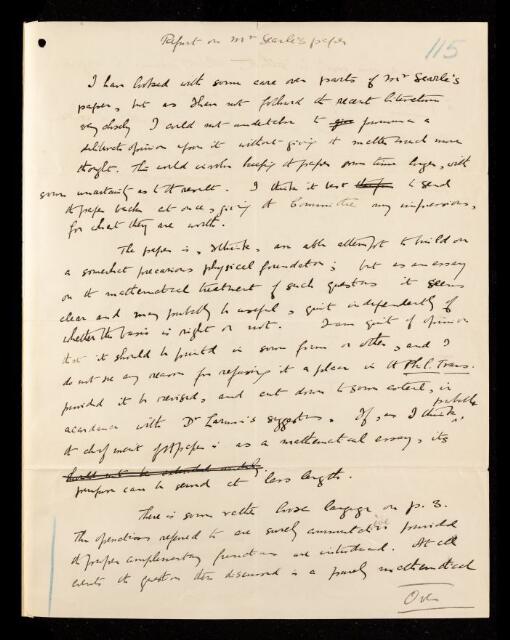 Report on Mr Searle's paper
115
I have looked with some care over parts of Mr Searle's
paper, but as I have not followed the recent literature
very closely I could not undertake to give pronounce a
deliberate opinion upon it without giving the matter much more
thought. This would involve keeping the paper some time longer, with
some uncertainty as to the result. I think it best to send
the paper back at once, giving the Committee my impressions,
for what they are worth.
The paper is, I think, an able attempt to build on
a somewhat precarious physical foundation; but as an essay
on the mathematical treatment of such questions it seems
clear and may probably be useful, quite independently of
whether the basis is right or not. I am quite of opinion
that it should be printed in some form or other, and I
do not see any reason for refusing it a place in the Phil. Trans.
provided it be revised, and cut down to some extent, in
accordance with Dr Larmor's suggestions. If, as I think, probable
the chief merit of the paper is as a mathematical essay, its
should not be extended
purpose can be served at less length.
There is some rather loose language on p. 3.
The operations referred to are surely commutative provided
the proper complementary functions are introduced. At all
events the question there discussed is a purely mathematical
Over